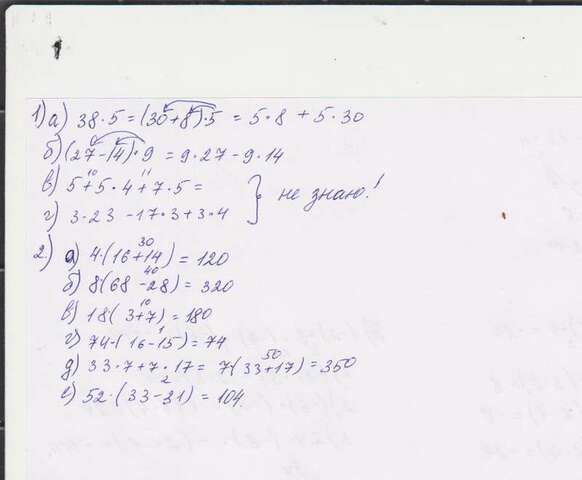 1) а) 38·5 = (30+8)·5 = 5·8 + 5·30
б) (27-14)·9 = 9·27 - 9·14
10 11
в) 5+5·4+7·5 =
г) 3·23 - 17·3 + 3·4
} не знаю!
30
2.) а) 4·(16+14) = 120
40
б) 8(68-28) = 320
10
в) 18(3+7) = 180
1
г) 74·(16-15) = 74
50
д) 33·7+7·17 = 7(33+17) = 350
2
е) 52·(33-31) = 104.